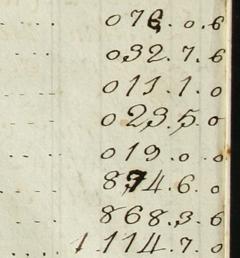 076. 0. 6
032. 7. 6
011. 1. 0
023. 5. 0
019. 0. 0
874. 6. 0
868. 3. 6
1114. 7. 0